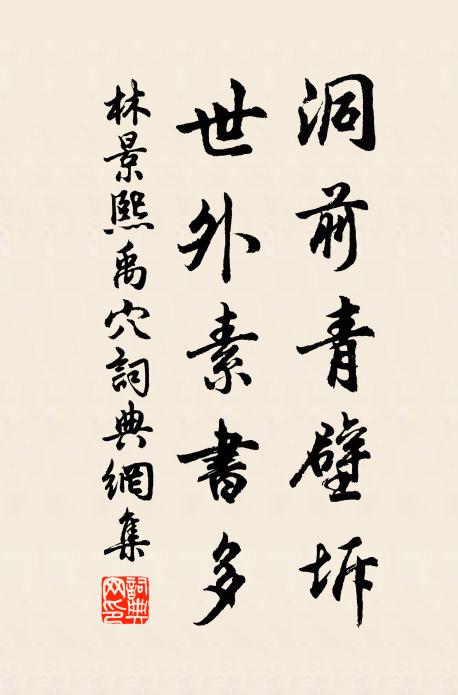 洞前青壁坼
世外素書多
林景熙禹穴詞典網集
詞典网印